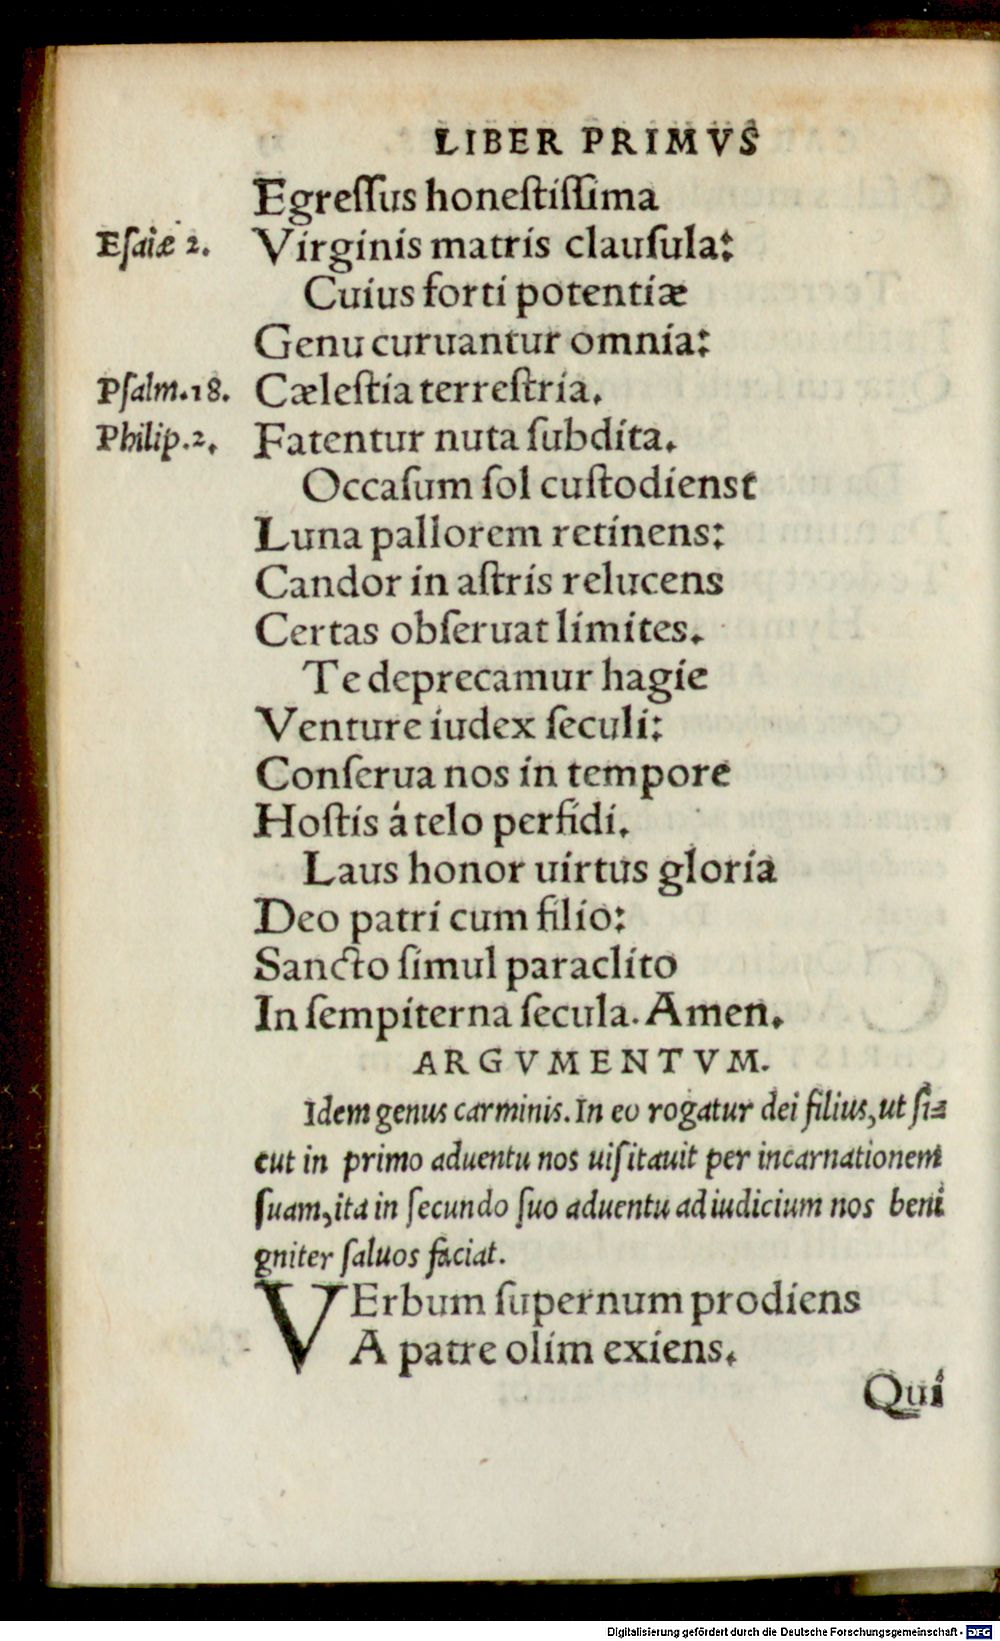 LIBER PRIMVS
Egreſſus honeſtiſſima
Eſaiæ 2. Virginis matris clauſula:
Cuius forti potentiæ
Genu curuantur omnia:
Pſalm.18. Cæleſtia terreſtria.
Philip.2. Fatentur nuta ſubdita.
Occaſum ſol cuſtodienst
Luna pallorem retinens:
Candor in aſtris relucens
Certas obſeruat limites.
Te deprecamur hagie
Venture iudex ſeculi:
Conſerua nos in tempore
Hoſtis á telo perfidi.
Laus honor uirtus gloria
Deo patri cum filio:
Sancto ſimul paraclito
In ſempiterna ſecula. Amen.
ARGVMENTVM.
Idem genus carminis. In eo rogatur dei filius, ut ſi=
cut in primo aduentu nos uiſitauit per incarnationem
ſuam, ita in ſecundo ſuo aduentu ad iudicium nos beni
gniter ſaluos faciat.
VErbum ſupernum prodiens
A patre olim exiens.
Qui
Digitalisierung gefördert durch die Deutsche Forschungsgemeinschaft - DFG